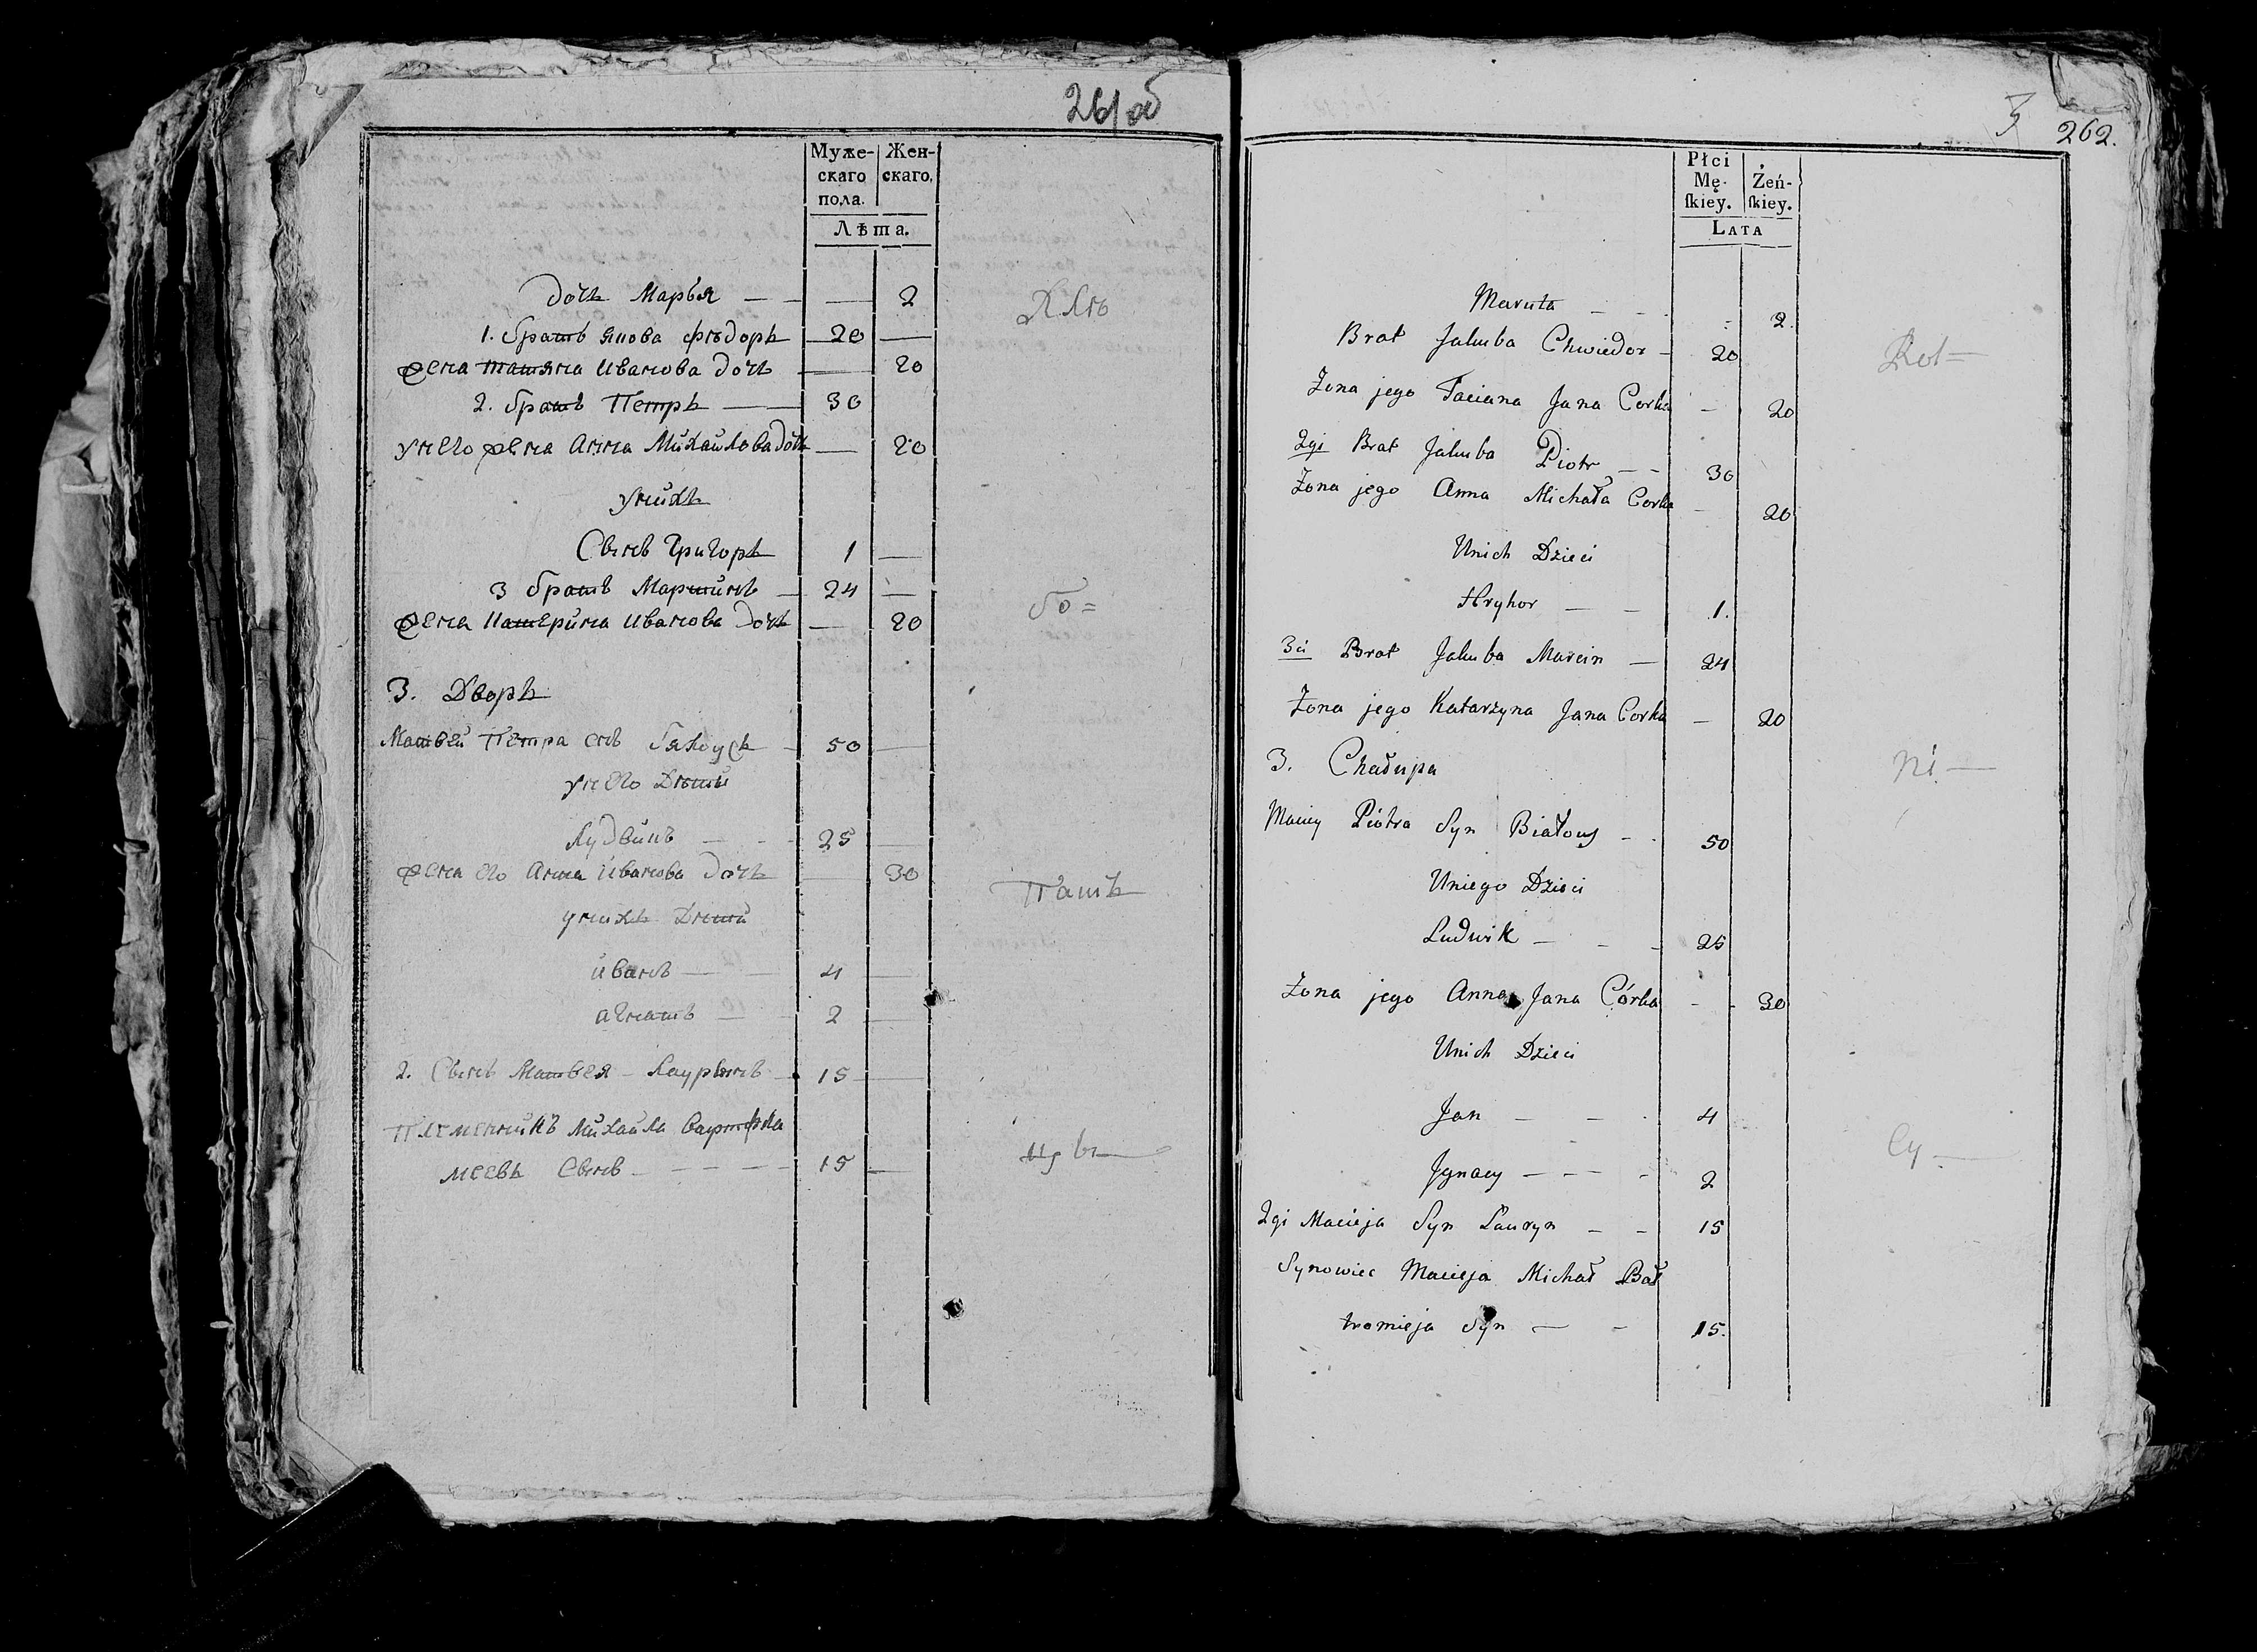 261 об
Муже-
скаго
пола.
Жен-
скаго.
Лѣта.
дочь Марья — — — 2
1. братъ Якова Фѣдоръ 20 —
жена татяна Иванова дочь — 20
2. братъ Петръ — 30
унего жена Анна Михайлова дочь — 20
унихъ
Сынъ Григоръ 1 —
3 братъ Мартинъ — 24 —
жена Катерина Иванова дочь — 20
3. Дворъ
Матвей Петра снъ Бялоусъ — 50 —
унего Дѣти
Лудвикъ — — 25 —
жена его Анна Иванова дочь — 30
унихъ Дѣти
Иванъ — — 4 —
агнатъ — — 2 —
2. Сынъ Матвея — Лаурынъ — 15 —
Племенникъ Михайла
меевъ Сынъ — — — — 15 —
бо=
Патъ
3
262.
Płci
Mę-
ſkiey.
Żeń-
ſkiey.
Lata
Maruta — — 2.
Brat Jakuba Chwiedor — 20
Żona jego Taciana Jana Corka — 20
2gi Brat Jakuba Piotr — — 30
Żona jego Anna Michała Corka — 20
Unich Dzieci
Hryhor — — 1.
3ci Brat Jakuba Marcin — 24
Żona jego Katarzyna Jana Corka — 20
3. Chałupa
Maciey Piotra Syn Białous — . 50
Uniego Dzieci
Ludwik — - - 25
Żona jego Anna Jana Córka - - 30
Unich Dzieci
Jan — — . 4
Jgnacy — - — - 2
2gi Macieja Syn Lauryn — — 15
Synowiec Macieja Michał Bał
tromieja Syn — — 15.
Ni —
Cy —